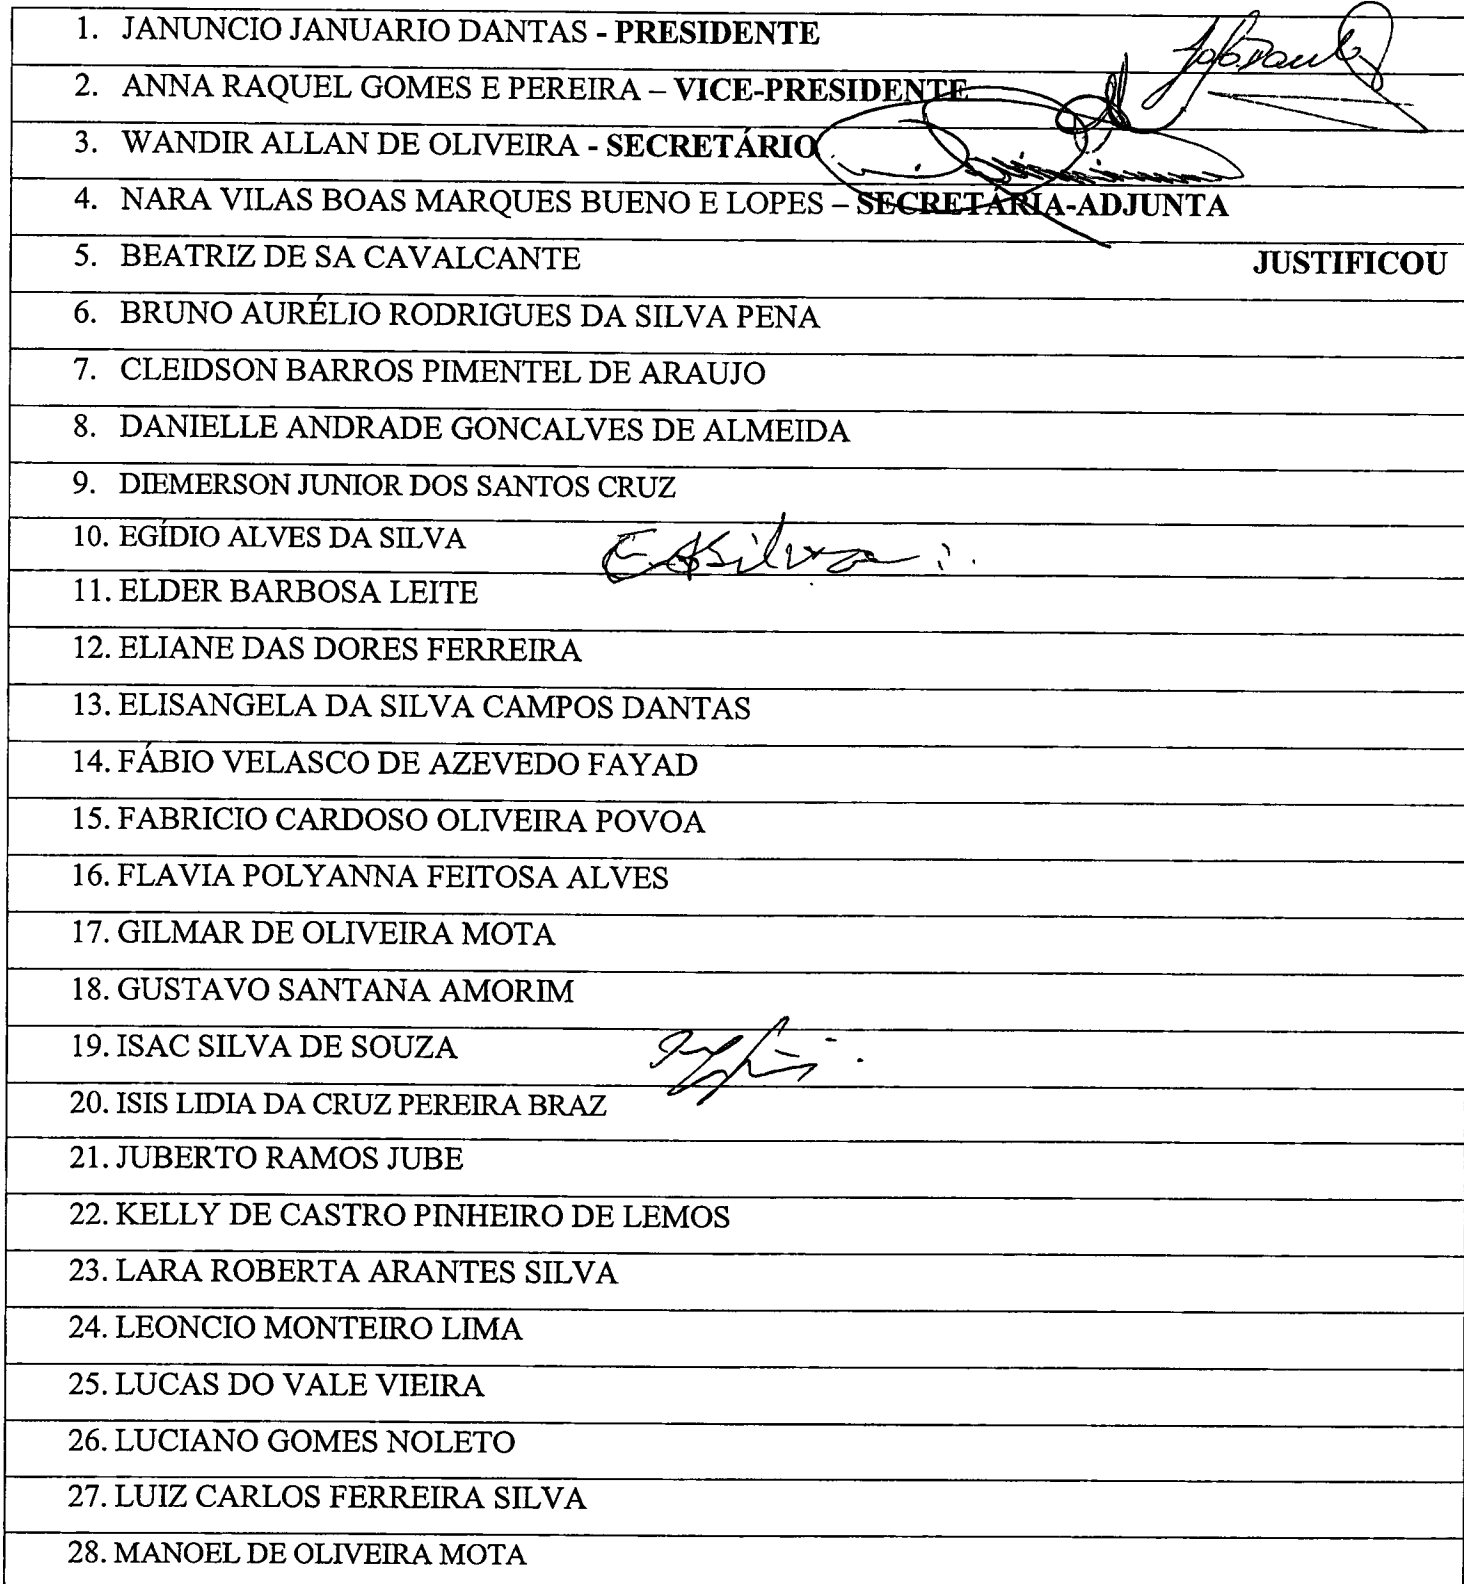 1. JANUNCIO JANUARIO DANTAS - PRESIDENTE
2. ANNA RAQUEL GOMES E PEREIRA – VICE-PRESIDENTE
3. WANDIR ALLAN DE OLIVEIRA - SECRETÁRIO
4. NARA VILAS BOAS MARQUES BUENO E LOPES – SECRETÁRIA-ADJUNTA
5. BEATRIZ DE SA CAVALCANTE JUSTIFICOU
6. BRUNO AURÉLIO RODRIGUES DA SILVA PENA
7. CLEIDSON BARROS PIMENTEL DE ARAUJO
8. DANIELLE ANDRADE GONCALVES DE ALMEIDA
9. DIEMERSON JUNIOR DOS SANTOS CRUZ
10. EGÍDIO ALVES DA SILVA
11. ELDER BARBOSA LEITE
12. ELIANE DAS DORES FERREIRA
13. ELISANGELA DA SILVA CAMPOS DANTAS
14. FÁBIO VELASCO DE AZEVEDO FAYAD
15. FABRICIO CARDOSO OLIVEIRA POVOA
16. FLAVIA POLYANNA FEITOSA ALVES
17. GILMAR DE OLIVEIRA MOTA
18. GUSTAVO SANTANA AMORIM
19. ISAC SILVA DE SOUZA
20. ISIS LIDIA DA CRUZ PEREIRA BRAZ
21. JUBERTO RAMOS JUBE
22. KELLY DE CASTRO PINHEIRO DE LEMOS
23. LARA ROBERTA ARANTES SILVA
24. LEONCIO MONTEIRO LIMA
25. LUCAS DO VALE VIEIRA
26. LUCIANO GOMES NOLETO
27. LUIZ CARLOS FERREIRA SILVA
28. MANOEL DE OLIVEIRA MOTA